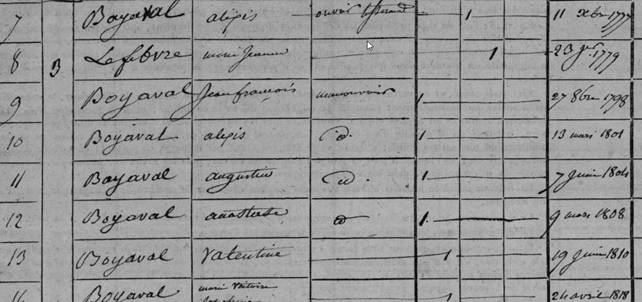 7 Boyaval alexis ouvrier 1 11 xbre 1777
8 3 Lefebvre marie jeanne 1 23 jer 1779
9 Boyaval Jean françois manouvrier 1 27 8bre 1798
10 Boyaval alexis id. 1 13 mars 1801
11 Boyaval augustin id. 1 7 juin 1804
12 Boyaval anastase id 1 9 mars 1808
13 Boyaval Valentine 1 19 juin 1810
14 Boyaval marie victoire 1 24 avril 1818